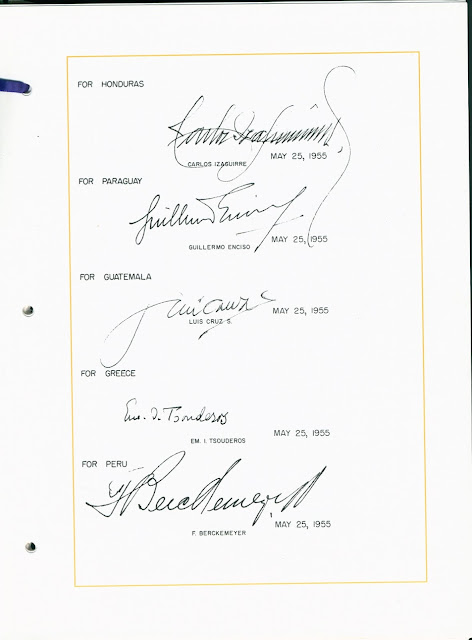 FOR HONDURAS
Carlos Izaguirre
CARLOS IZAGUIRRE
MAY 25, 1955
FOR PARAGUAY
Guillermo Enciso
GUILLERMO ENCISO
MAY 25, 1955
FOR GUATEMALA
Luis Cruz S.
LUIS CRUZ S.
MAY 25, 1955
FOR GREECE
Em. I. Tsouderos
EM. I. TSOUDEROS
MAY 25, 1955
FOR PERU
F Berckemeyer
F. BERCKEMEYER
MAY 25, 1955